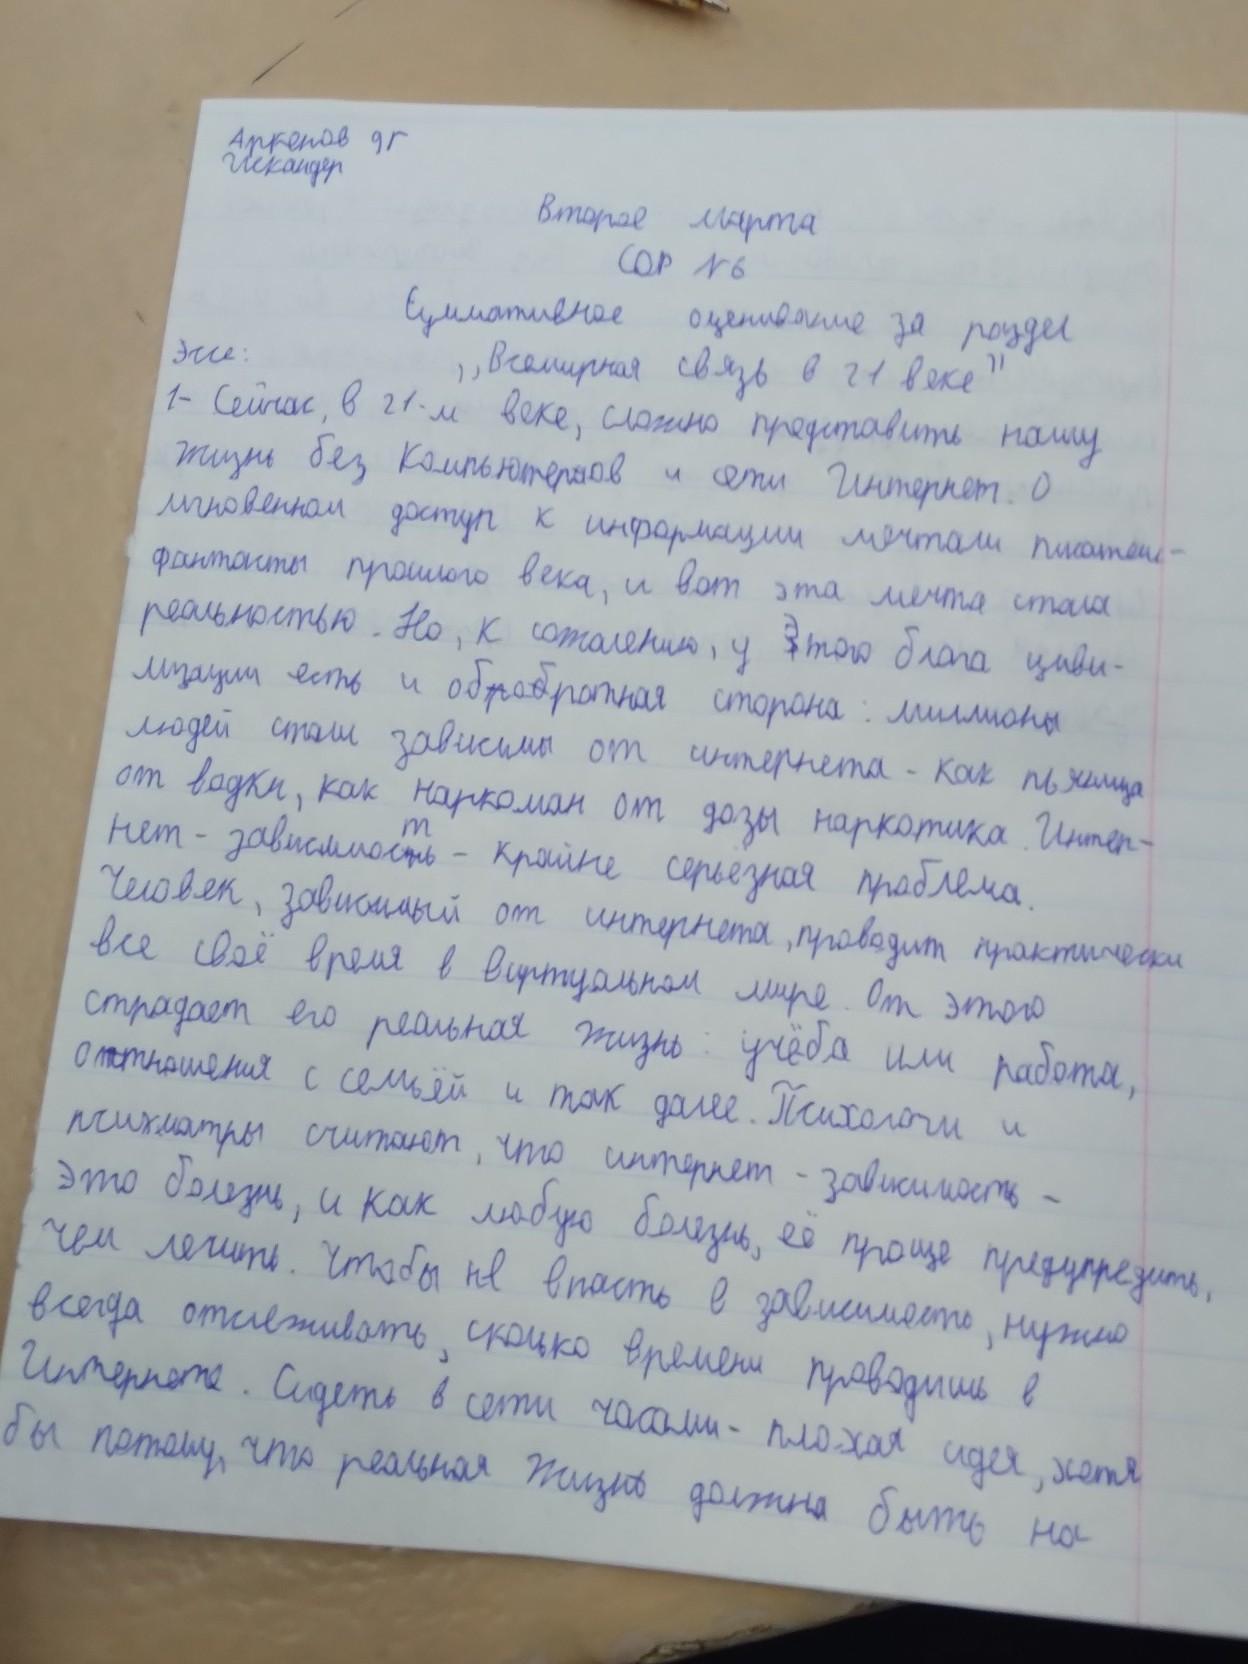 Аркенов 9г
Искандер
Второе марта
СОР №6
Суммативное оценивание за раздел
Эссе: ,,Всемирная связь в 21 веке"
1- Сейчас, в 21-м веке, сложно представить нашу
жизнь без компьютеров и сети Интернет. О
мгновенном доступ к информации мечтали писатели-
фантасты прошлого века, и вот эта мечта стала
реальностью. Но, к сожалению, у этого блага циви-
лизации есть и обратная сторона: миллионы
людей стали зависимы от интернета - как пьяница
от водки, как наркоман от дозы наркотика. Интер-
нет - зависимость - крайне серьёзная проблема.
Человек, зависимый от интернета, проводит практически
все своё время в виртуальном мире. От этого
страдает его реальная жизнь: учёба или работа,
отношения с семьёй и так далее. Психологи и
психиатры считают, что интернет - зависимость -
это болезнь, и как любую болезнь, её проще предупредить,
чем лечить. Чтобы не впасть в зависимость, нужно
всегда отслеживать, сколько времени проводишь в
Интернете. Сидеть в сети часами - плохая идея, хотя
бы потому, что реальная жизнь должна быть на